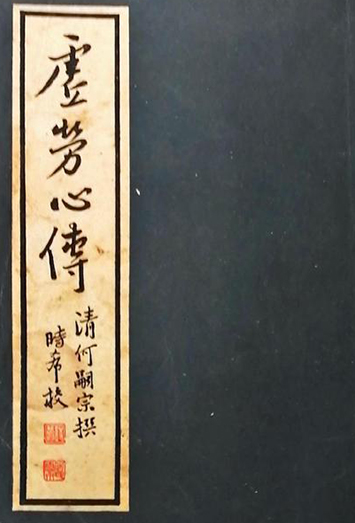 虛勞心傳
清何嗣宗撰
時希校